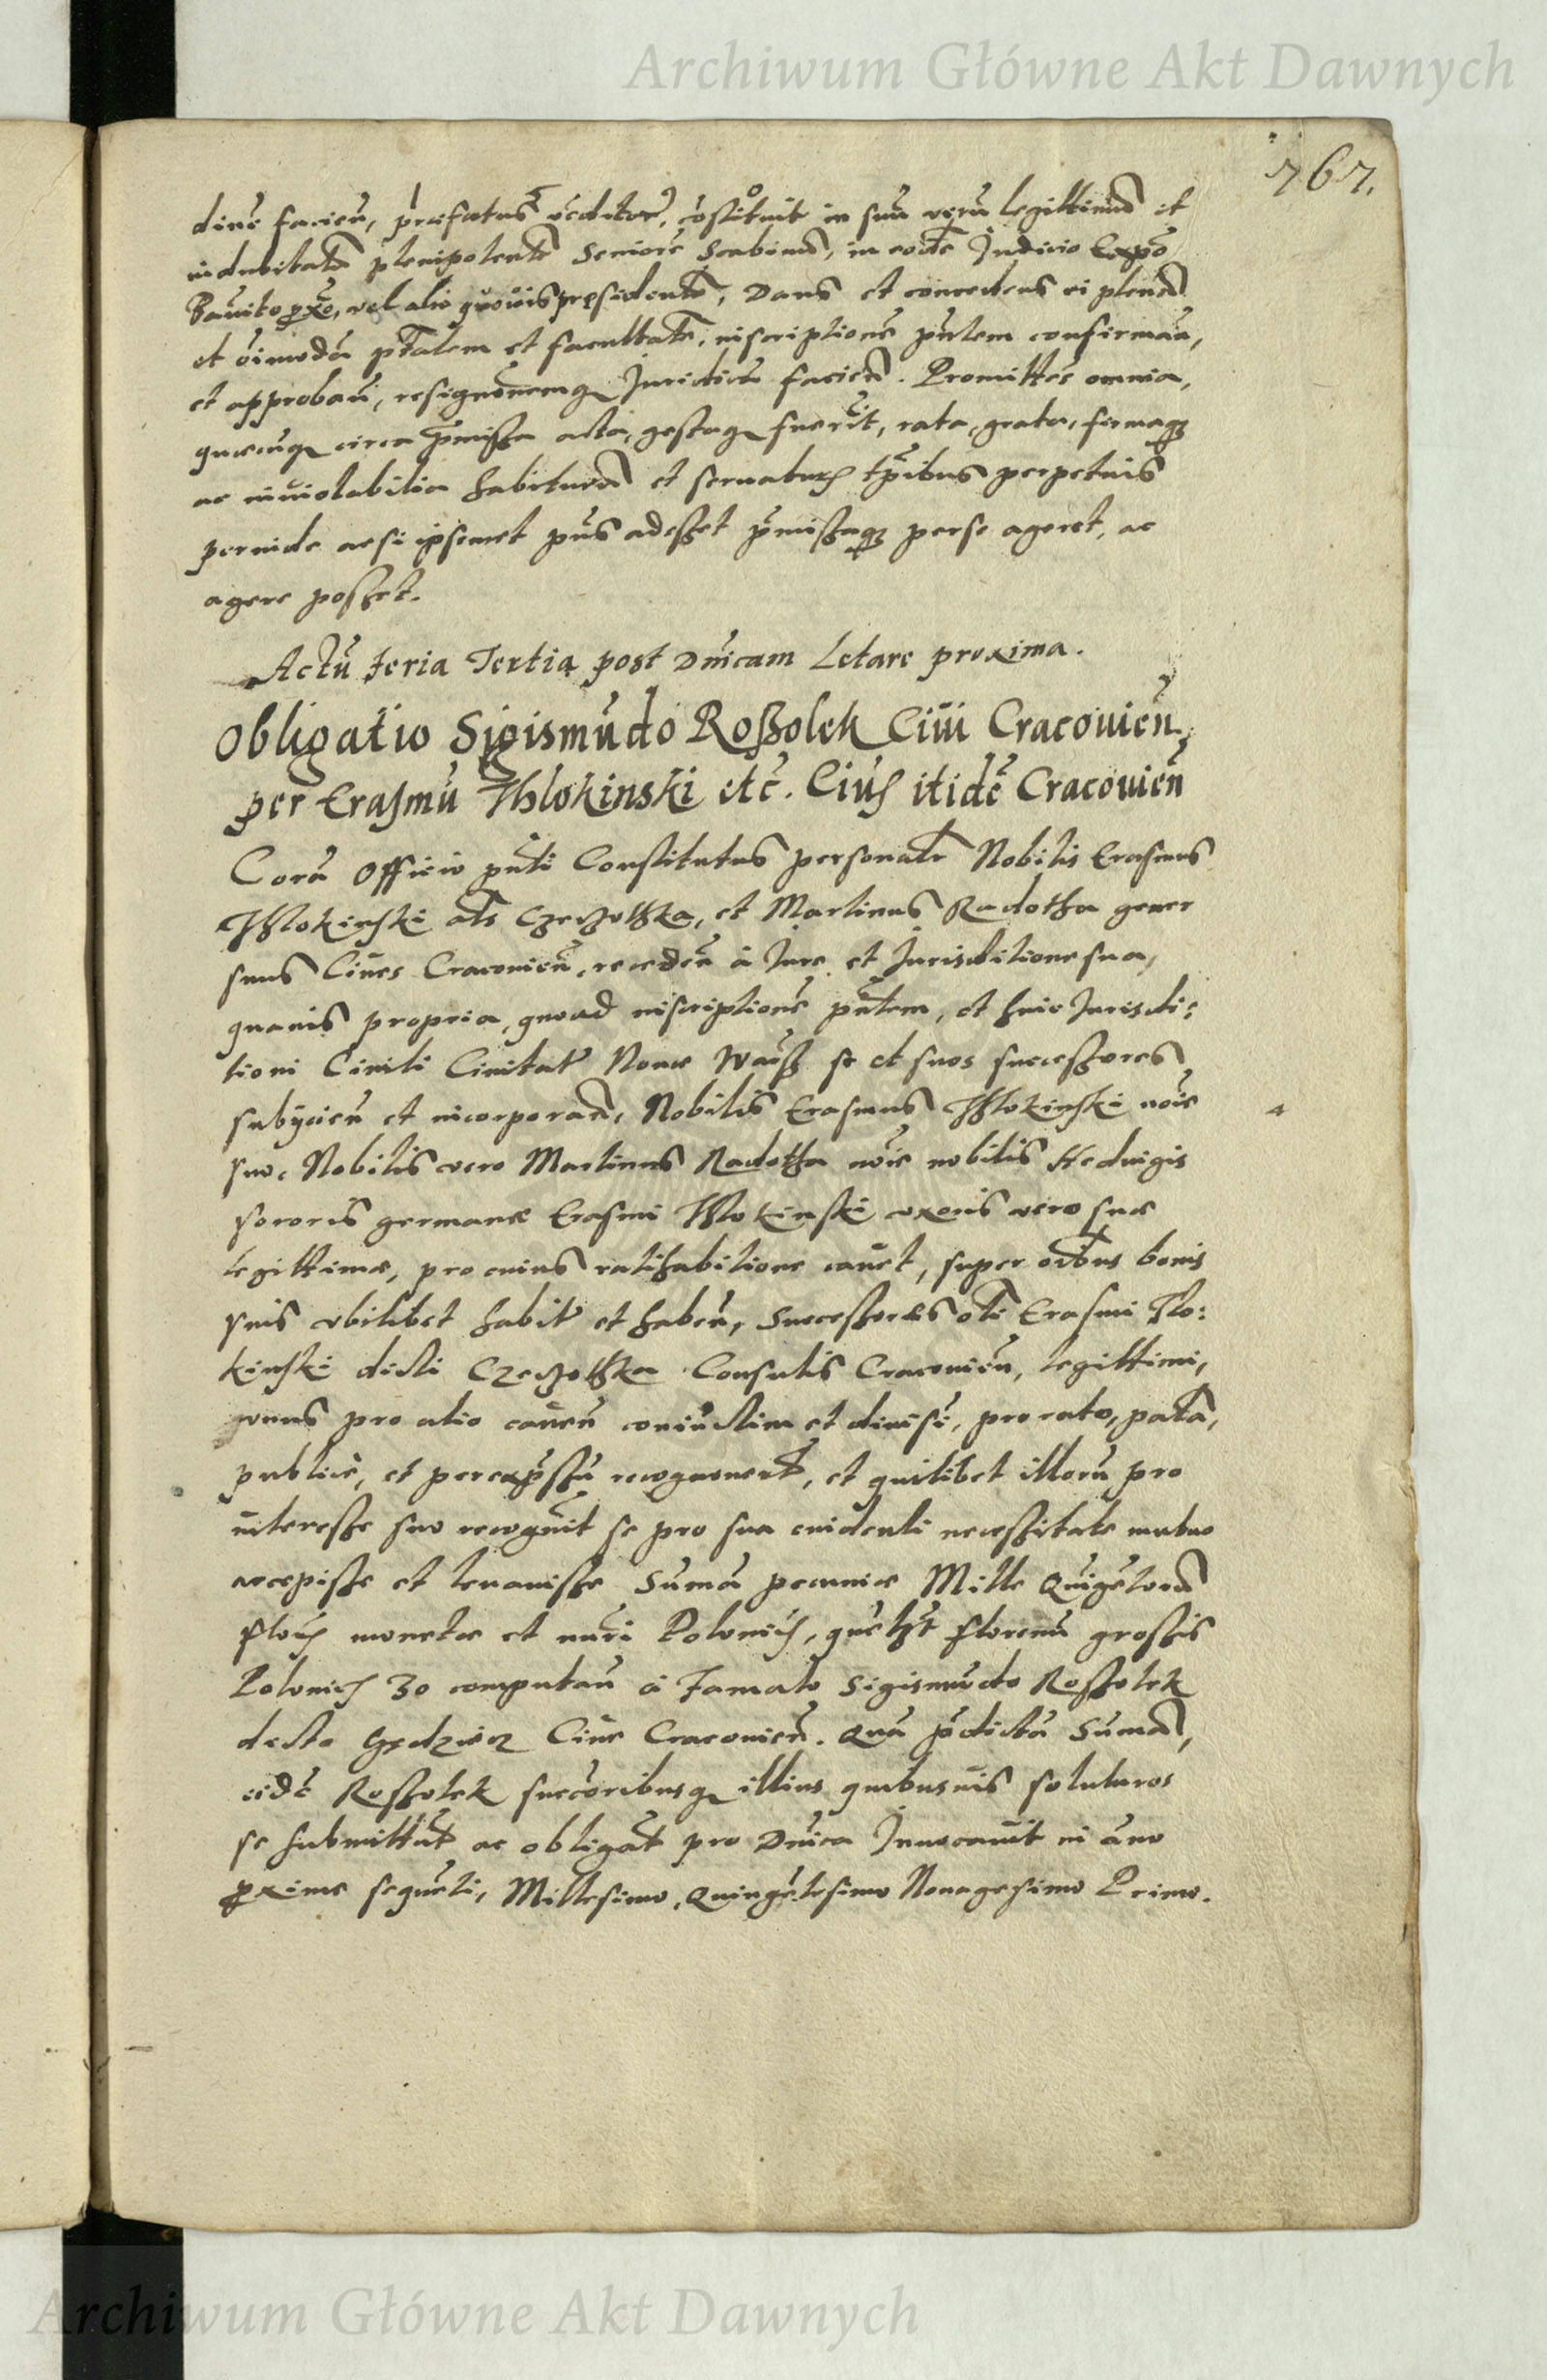 Archiwum Główne Akt Dawnych
767.
dine facien, præfatus vēditor, cōstituit in suū verū legittimū et
indubitatū plenipotentē Seniorē Scabinū, in eodē Iudicio Expo
Bauito pxō, vel alio quouis pręsidente, Dans et concedens ei plenā
et oīmodā ptātem et facultatē, inscriptionē pūtem confirmań,
et approbań, resignōnemq Iuridicē facień. Promittēs omnia,
quæcūq circa pmissa acta, gestaq fuerīt, rata, grata, firmaq
ac inuiolabilia habiturū et seruaturū tpribus perpetuis
perinde ac si ipsemet pūs adesset pmissaq per se ageret, ac
agere posset.
Actū feria Tertia post Dnīcam Letare proxima.
Obligatio Sigismūdo Roßolek Ciui Cracouień,
per Erasmū Thlokinski etc. Ciuē itidē Cracouień
Corā Officio pūti Constitutus personalr Nobilis Erasmus
Thlokinski als Czeczothka, et Martinus Radotha gener
suus Ciues Cracouień, receden à Iure et Iurisditione sua,
quauis propria, quoad inscriptionē pūtem, et huic Iurisdi:
tioni Ciuili Ciuitatis Nouæ Warss se et suos successores
subijcień et incorporań, Nobilis Erasmus Thlokinski noīe
suo, Nobilis vero Martinus Radotha noīe nobilis Heduigis
sororis germanæ Erasmi Thlokinski vxoris vero suæ
legittimæ, pro cuius ratihabitione cauet, super oībus bonis
suis vbilibet habit et habeń, Successores olī Erasmi Tlo:
kinski dicti Czeczothka Consulis Cracouień, legittimi,
vnus pro alio caueń coniūctim et diuisī, pro rato, palā,
publicè, et per expssū recognouerūt, et quilibet illorū pro
interesse suo recognuit se pro sua euidenti necessitate mutuo
accepisse et leuauisse Sumā pecuniæ Mille Quigētorū
florenorū monetæ et nūri Polonici, quēlbt florenū grossis
Polonicis 30 computań à Famato Sigismūdo Rossolek
dicto Gędzicz Ciue Cracouień. Quā pdictā Sumā,
eidē Rossolek succoribusq illius quibusuis soluturos
se submittūt ac obligāt pro Dnīca Inuocauit in āno
pxime sequēti, Millesimo, Quingētesimo Nonagesimo Primo.
Archiwum Główne Akt Dawnych